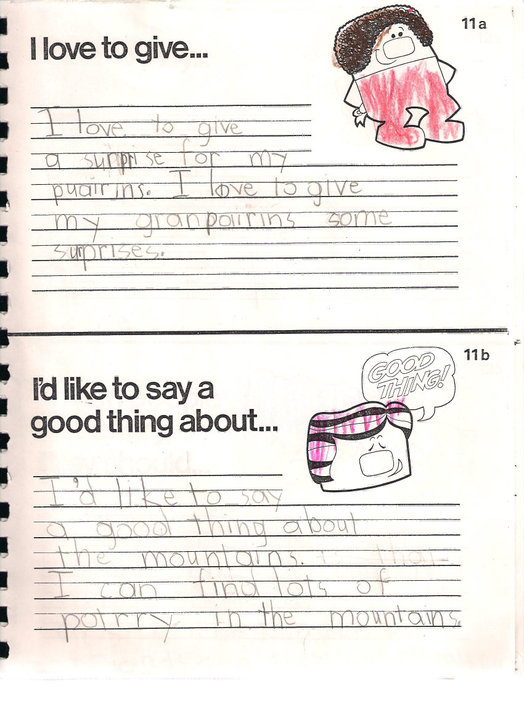 11a
I love to give...
I love to give
a surprise for my
puairins. I love to give
my granpairins some
surprises.
11b
GOOD
THING!
I'd like to say a
good thing about...
I'd like to say
a good thing about
the mountains.
I can find lots of
potrry in the mountains